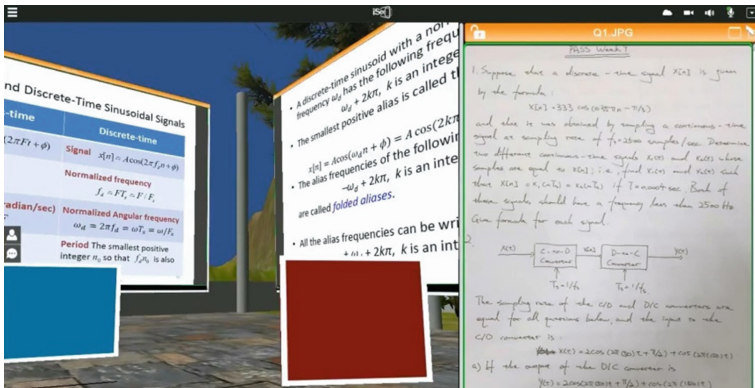 iSee
nd Discrete-Time Sinusoidal Signals
-time
Discrete-time
(2πFt + ϕ)
Signal x[n] = A cos(2πf_d n + ϕ)
Normalized frequency
f_d = FT_s = F / F_s
radian/sec)
Normalized Angular frequency
ω_d = 2πf_d = ωT_s = ω/F_s
Period The smallest positive
integer n_0 so that f_d n_0 is also
• A discrete-time sinusoid with a nor
frequency ω_d has the following frequ
ω_d + 2kπ, k is an intege
• The smallest positive alias is called th
x[n] = A cos(ω_d n + ϕ) = A cos(2kπ
• The alias frequencies of the followin
-ω_d + 2kπ, k is an inte
are called folded aliases.
• All the alias frequencies can be wri
+ 2kπ, k is an int
Q1.JPG
PASS Week 7
1. Suppose that a discrete-time signal x[n] is given
by the formula:
and that it was obtained by sampling a continuous-time
signal at sampling rate of f_s = 2500 samples/sec. Determine
two different continuous-time signals x_1(t) and x_2(t) whose
samples are equal to x[n]; i.e., find x_1(t) and x_2(t) such
that x[n] = x_1(nT_s) = x_2(nT_s) if
Both of
these signals should have a frequency less than 2500 Hz
Give formula for each signal.
2.
x(t)
C-to-D
Converter
x[n]
D-to-C
Converter
y(t)
T_s = 1/f_s
T_s = 1/f_s
The sampling rate of the C/D and D/C converters are
equal for all questions below, and the input to the
C/D converter is:
a) If the output of the D/C converter is